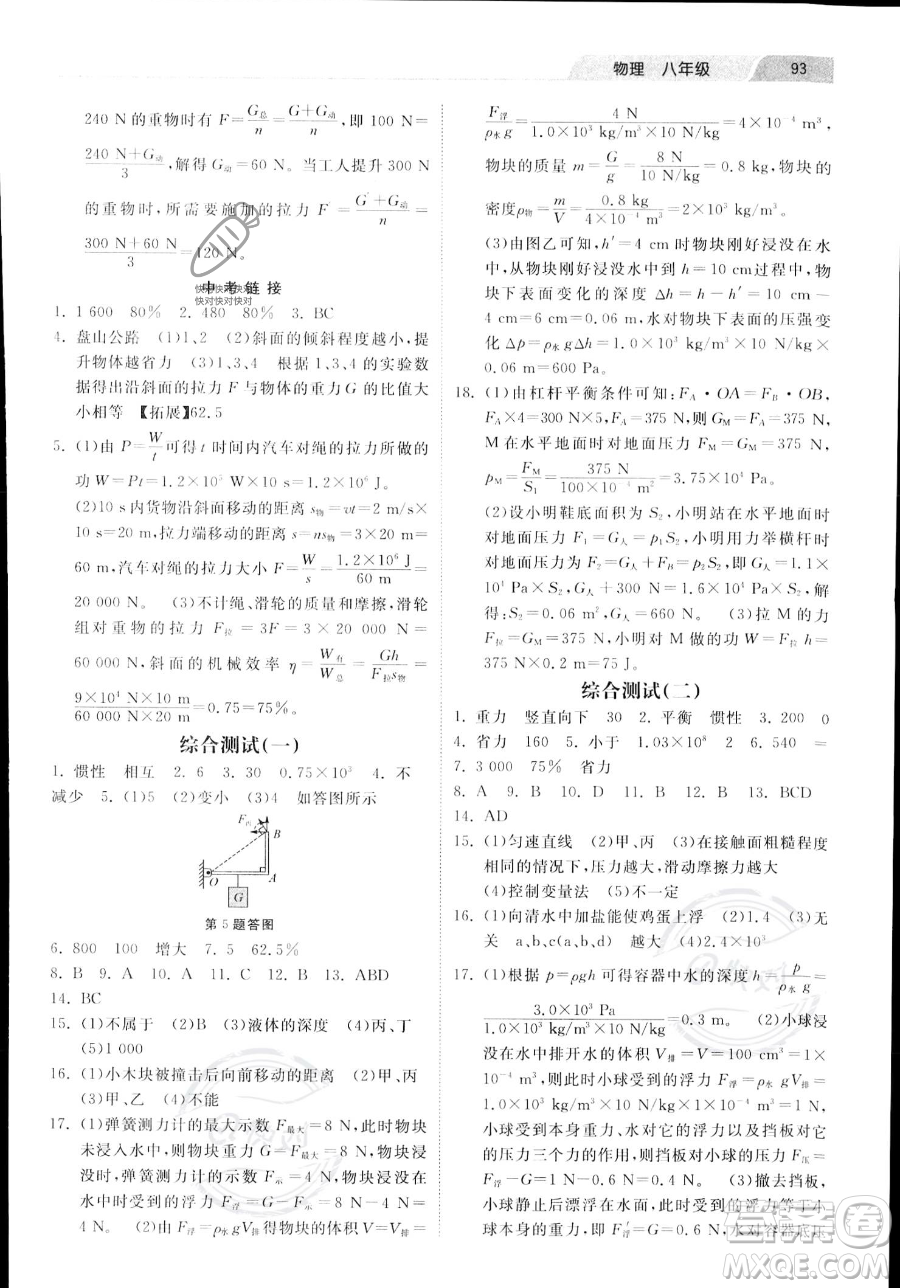 物理 八年级 93
240 N的重物时有 F=G总/n=(G+G动)/n,即 100 N=
(240 N+G动)/3,解得 G动=60 N。当工人提升 300 N
的重物时,所需要施加的拉力 F=(G′+G动)/n=
(300 N+60 N)/3=120 N。
中考链接
快对快对快对
快对快对快对
1. 1 600 80% 2. 480 80% 3. BC
4. 盘山公路 (1)1.2 (2)斜面的倾斜程度越小,提
升物体越省力 (3)1.4 根据1、3、4的实验数
据得出沿斜面的拉力 F 与物体的重力 G 的比值大
小相等 【拓展】62.5
5. (1)由 P=W/t可得 t 时间内汽车对绳的拉力所做的
功 W=Pt=1.2×10⁵ W×10 s=1.2×10⁶ J。
(2)10 s内货物沿斜面移动的距离 s物=vt=2 m/s×
10 s=20 m,拉力端移动的距离 s=ns物=3×20 m=
60 m,汽车对绳的拉力 F=W/s=(1.2×10⁶ J)/(60 m)=
20 000 N。 (3)不计绳、滑轮的质量和摩擦,滑轮
组对重物的拉力 F拉=3F=3×20 000 N=
60 000 N,斜面的机械效率 η=W有/W总=Gh/(F拉s物)=
(9×10⁴ N×10 m)/(60 000 N×20 m)=0.75=75%。
综合测试(一)
1. 惯性 相互 2. 6 3. 30 0.75×10³ 4. 不
减少 5. (1)5 (2)变小 (3)4 如答图所示
F丙
B
O A
G
第5题答图
6. 800 100 增大 7. 5 62.5%
8. B 9. A 10. C 11. D 12. B 13. ABD
14. BC
15. (1)不属于 (2)B (3)液体的深度 (4)丙、丁
(5)1 000
16. (1)小木块被撞击后向前移动的距离 (2)甲、丙
(3)甲、乙 (4)不能
17. (1)弹簧测力计的最大示数 F最大=8 N,此时物块
未浸入水中,则物块重力 G=F最大=8 N;物块浸
没时,弹簧测力计的示数 F示=4 N,则物块浸没
在水中时受到的浮力 F浮=G-F示=8 N-4 N=
4 N。 (2)由 F浮=ρ水gV排得物块的体积 V=V排=
F浮/(ρ水g)=4 N/(1.0×10³ kg/m³×10 N/kg)=4×10⁻⁴ m³,
物块的质量 m=G/g=8 N/(10 N/kg)=0.8 kg,物块的
密度ρ物=m/V=0.8 kg/(4×10⁻⁴ m³)=2×10³ kg/m³。
(3)由图乙可知,h′=4 cm时物块刚好浸没在水
中,从物块刚好浸没水中到 h=10 cm过程中,物
块下表面变化的深度 Δh=h-h′=10 cm-
4 cm=6 cm=0.06 m,水对物块下表面的压强变
化 Δp=ρ水gΔh=1.0×10³ kg/m³×10 N/kg×
0.06 m=600 Pa。
18. (1)由杠杆平衡条件可知:FA·OA=FB·OB,
FA×4=300 N×5,FA=375 N,则 GM=FA=375 N,
M在水平地面时对地面压力 FM=GM=375 N,
M在水平地面时对地面压强 p=
FM/S1=375 N/(100×10⁻⁴ m²)=3.75×10⁴ Pa。
(2)设小明鞋底面积为 S2,小明站在水平地面时
对地面压力 F1=G人=p人S2,小明用力举横杆时
对地面压力 F2=G人+FB=p压S2,则有 G人=1.1×
10⁴ Pa×S2,G人+300 N=1.6×10⁴ Pa×S2,解
得:S2=0.06 m²,G人=660 N。 (3)拉 M 的力
F拉=GM=375 N,小明对 M 做的功 W=F拉 h=
375 N×0.2 m=75 J。
综合测试(二)
1. 重力 竖直向下 30 2. 平衡 惯性 3. 200 0
4. 省力 160 5. 小于 1.03×10⁸ 6. 2 540
7. 3 000 75% 省力
8. A 9. B 10. D 11. A 12. B 13. BCD
14. AD
15. (1)匀速直线 (2)甲、丙 (3)在接触面粗糙程度
相同的情况下,压力越大,滑动摩擦力越大
(4)控制变量法 (5)不一定
16. (1)向清水中加盐能使鸡蛋上浮 (2)1.4 (3)无
关 a、b、c、d 越大 (4)2.4×10³
17. (1)根据 p=ρgh 可得容器中水的深度 h=p/(ρ水g)=
3.0×10³ Pa/(1.0×10³ kg/m³×10 N/kg)=0.3 m。 (2)小球浸
没在水中排开水的体积 V排=V=100 cm³=1×
10⁻⁴ m³,则此时小球受到的浮力 F浮=ρ水gV排=
1.0×10³ kg/m³×10 N/kg×1×10⁻⁴ m³=1 N;
小球受到本身重力、水对它的浮力以及挡板对它的
压力的共同作用,所以小球受到挡板的压力 F压=
F浮-G=1 N-0.5 N=0.5 N。 (3)撤去挡板,
小球静止后漂浮在水面,此时小球受到的浮力等于小
球本身的重力,即 F′浮=G=0.5 N,水对容器底压
答案圈
MXQE.COM